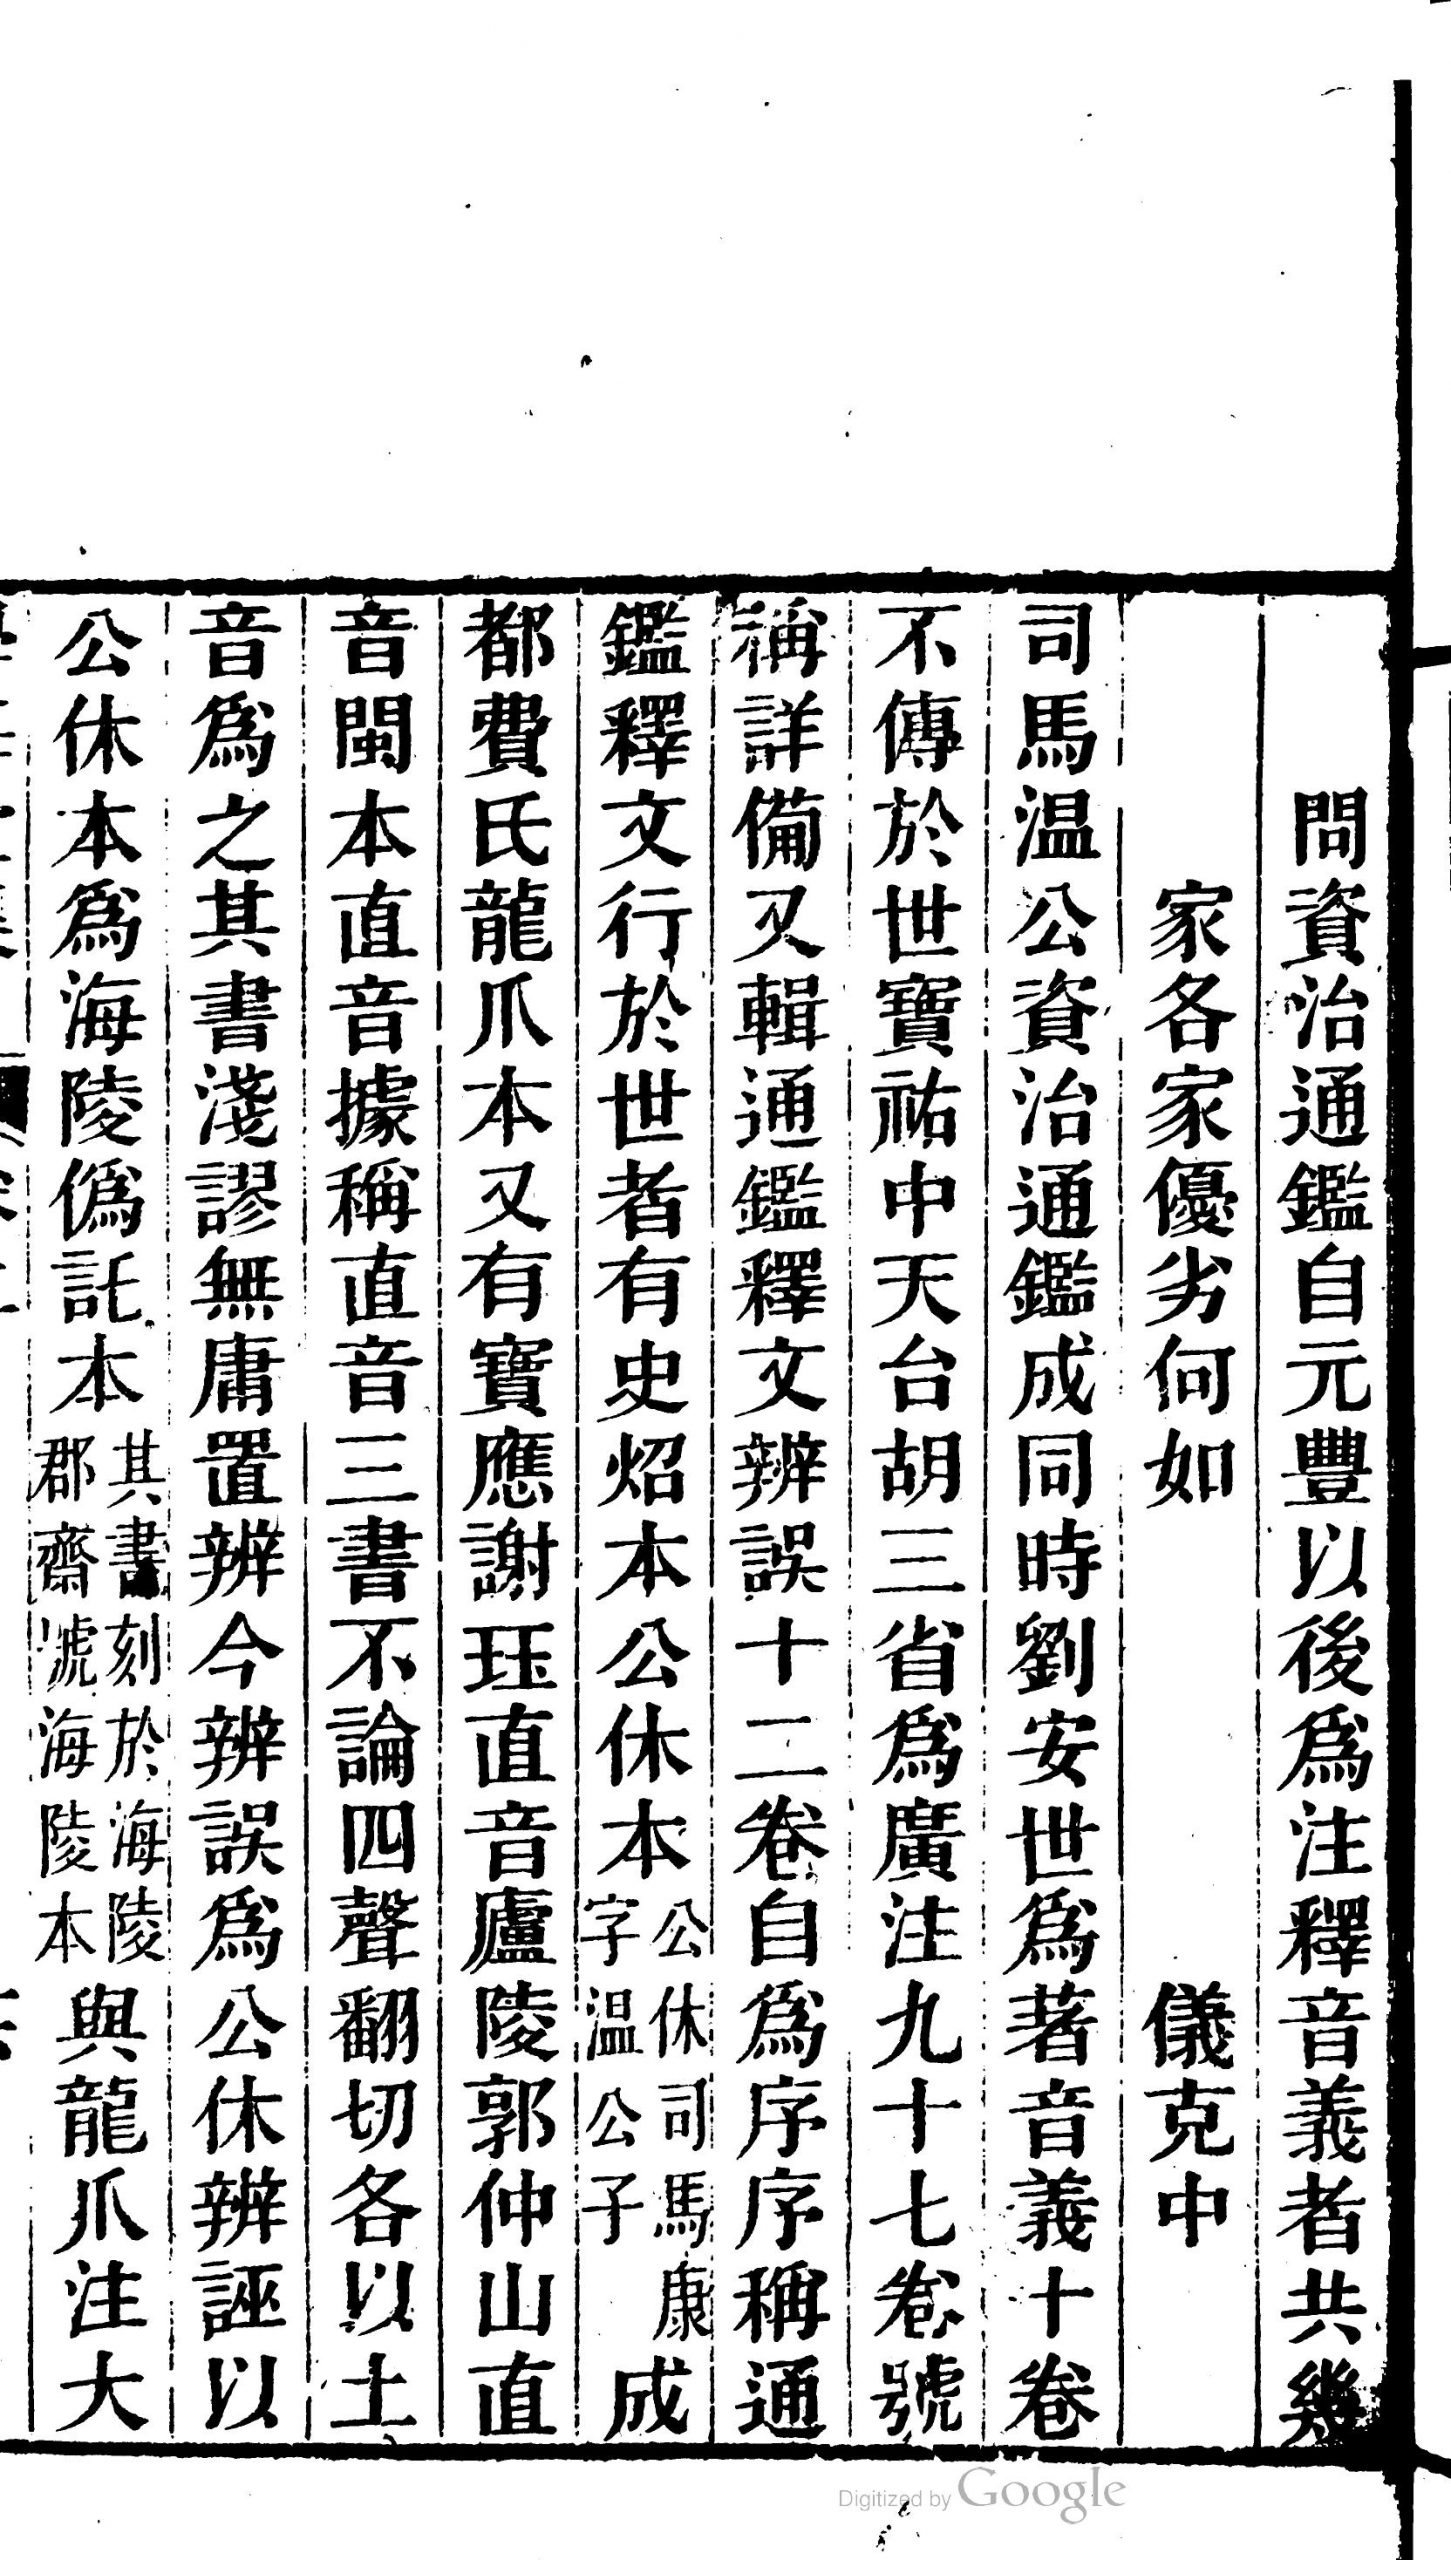 問資治通鑑自元豐以後爲注釋音義者共幾
家各家優劣何如 儀克中
司馬温公資治通鑑成同時劉安世爲著音義十卷
不傳於世寶祐中天台胡三省爲廣注九十七卷號
稱詳備又輯通鑑釋文辨誤十二卷自爲序序稱通
鑑釋文行於世者有史炤本公休本公休司馬康字温公子成
都費氏龍爪本又有寶應謝珏直音廬陵郭仲山直
音閩本直音據稱直音三書不論四聲翻切各以土
音爲之其書淺謬無庸置辨今辨誤爲公休辨誣以
公休本爲海陵僞託本其書刻於海陵郡齋號海陵本與龍爪注大
Digitized by Google